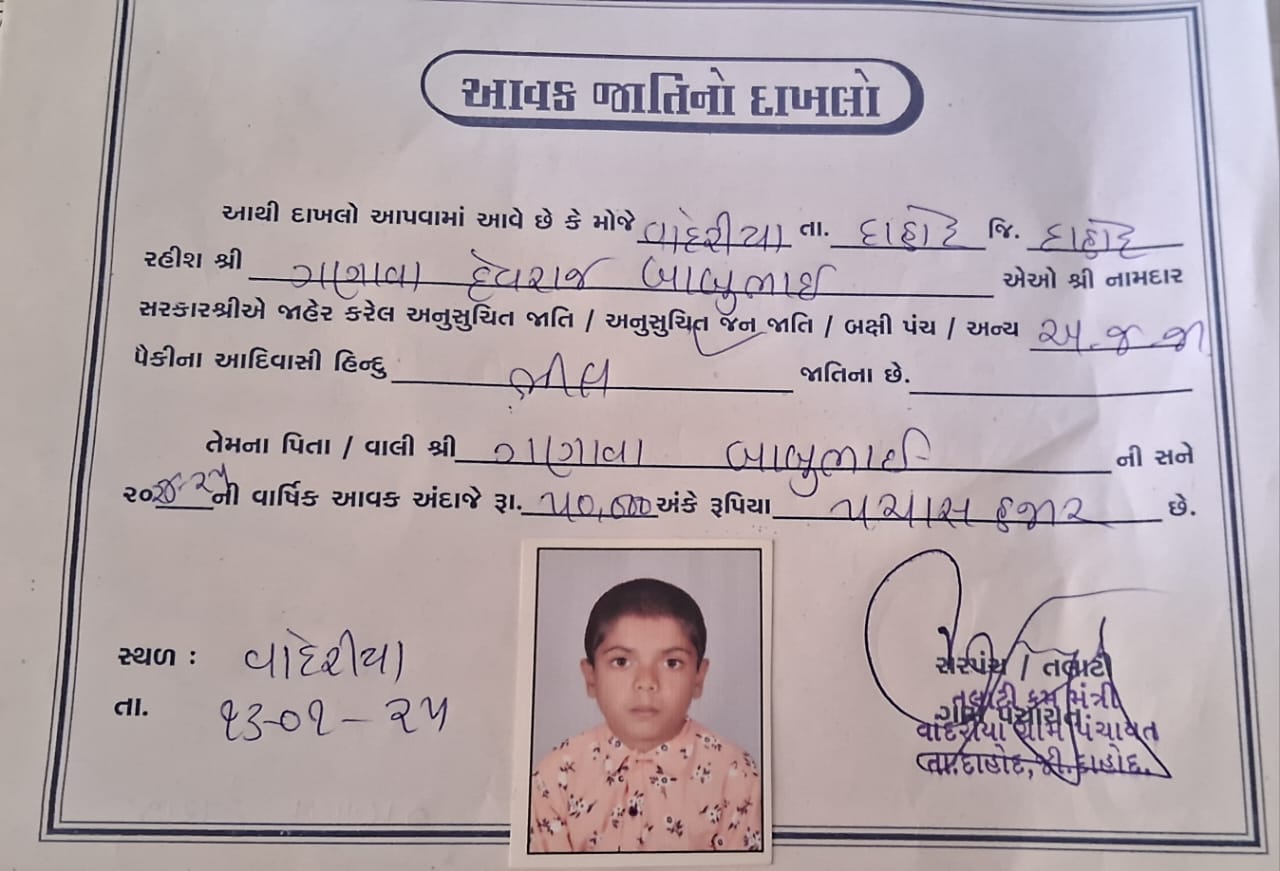 આવક જાતિનો દાખલો
આથી દાખલો આપવામાં આવે છે કે મોજે વાંદરીયા તા. દાહોદ જિ. દાહોદ
રહીશ શ્રી ગણાવા દેવરાજ બાબુભાઈ એઓ શ્રી નામદાર
સરકારશ્રીએ જાહેર કરેલ અનુસુચિત જાતિ / અનુસુચિત જન જાતિ / બક્ષી પંચ / અન્ય અ.જ.જા
પૈકીના આદિવાસી હિન્દુ ભીલ જાતિના છે.
તેમના પિતા / વાલી શ્રી ગણાવા બાબુભાઈ ની સને
૨૦૨૪-૨૫ની વાર્ષિક આવક અંદાજે રૂા. ૫૦,૦૦૦ અંકે રૂપિયા પચાસ હજાર છે.
સ્થળ : વાંદરીયા
તા. ૧૩-૦૧-૨૫
સરપંચ / તલાટી
તલાટી કમ મંત્રી
ગ્રામ પંચાયત
વાંદરીયા ગ્રામ પંચાયત
તા.દાહોદ, જી.દાહોદ.